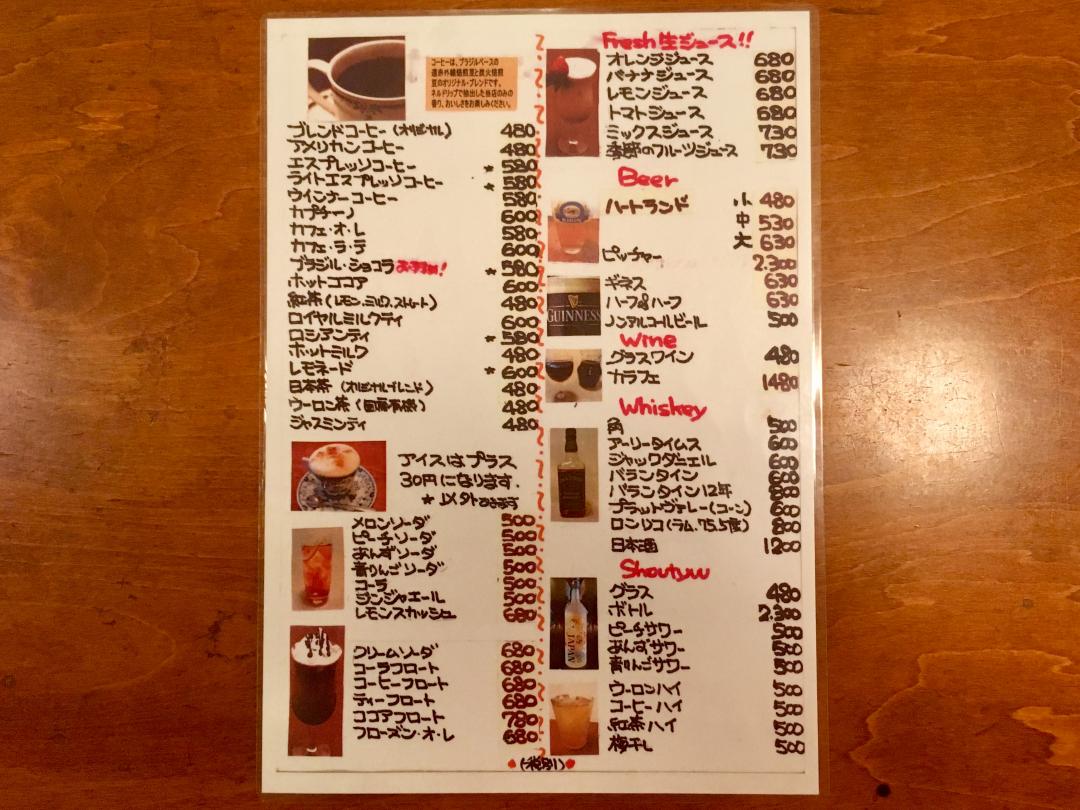 コーヒーは、ブラジルベースの
遠赤外線焙煎豆と炭火焙煎
豆のオリジナル・ブレンドです。
ネルドリップで抽出した当店のみの
香り、おいしさをお楽しみください。
ブレンドコーヒー(オリジナル) 480
アメリカンコーヒー 480
エスプレッソコーヒー * 580
ライトエスプレッソコーヒー * 580
ウインナーコーヒー 580
カプチーノ 600
カフェ・オ・レ 580
カフェ・ラ・テ 600
ブラジル・ショコラ おすすめ! * 580
ホットココア 600
紅茶(レモン,ミルク,ストレート) 480
ロイヤルミルクティ 600
ロシアンティ * 580
ホットミルク 480
レモネード * 600
日本茶(オリジナルブレンド) 480
ウーロン茶 480
ジャスミンティ 480
アイスはプラス
30円になります.
* 以外
メロンソーダ 500
ピーチソーダ 500
あんずソーダ 500
青りんごソーダ 500
コーラ 500
ジンジャエール 500
レモンスカッシュ 680
クリームソーダ 680
コーラフロート 680
コーヒーフロート 680
ティーフロート 680
ココアフロート 780
フローズン・オ・レ 680
Fresh 生ジュース!!
オレンジジュース 680
バナナジュース 680
レモンジュース 680
トマトジュース 680
ミックスジュース 730
季節のフルーツジュース 730
Beer
ハートランド 小 480
中 530
大 630
ピッチャー 2.300
ギネス 630
ハーフ&ハーフ 630
ノンアルコールビール 500
GUINNESS
Wine
グラスワイン 480
カラフェ 1480
Whiskey
アーリータイムス
ジャックダニエル
バランタイン
バランタイン12年
プラットヴァレー(コーン)
ロンリコ(ラム.75.5度)
日本酒
Shoutyuu
グラス 480
ボトル
ピーチサワー
あんずサワー
青りんごサワー
JAPAN
ウーロンハイ
コーヒーハイ
紅茶ハイ
梅干し
(税別)